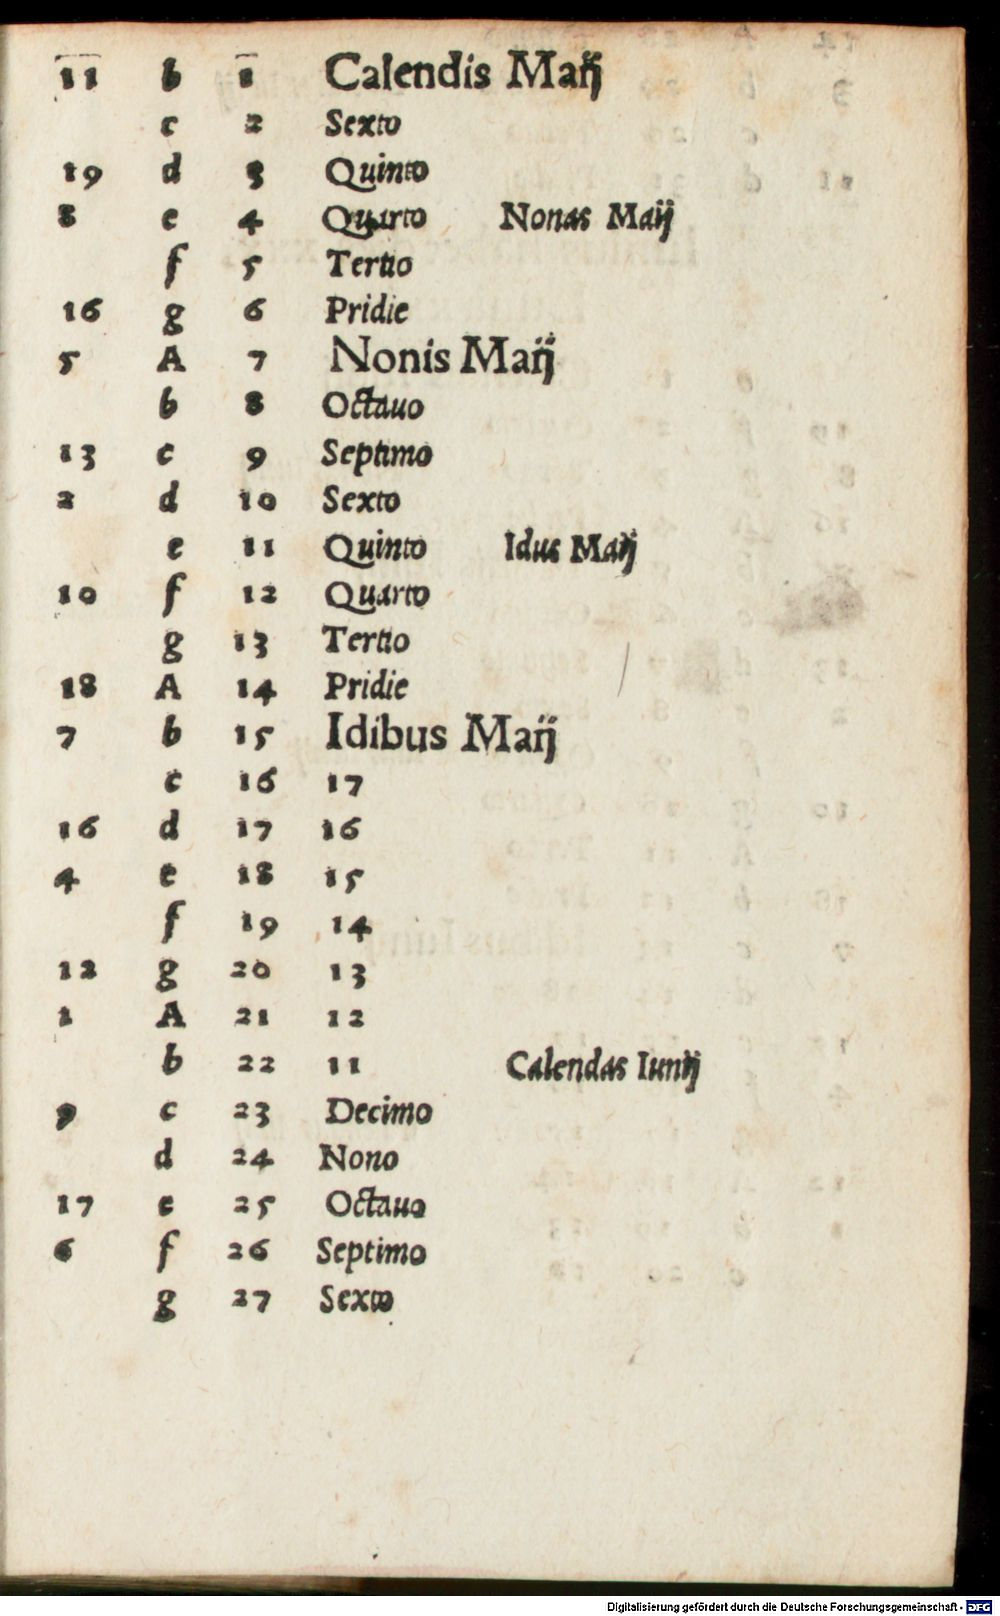 11 b 1 Calendis Maij
c 2 Sexto
19 d 3 Quinto
8 e 4 Quarto Nonas Maij
f 5 Tertio
16 g 6 Pridie
5 A 7 Nonis Maij
b 8 Octauo
13 c 9 Septimo
2 d 10 Sexto
e 11 Quinto Idus Maij
10 f 12 Quarto
g 13 Tertio
18 A 14 Pridie
7 b 15 Idibus Maij
c 16 17
16 d 17 16
4 e 18 15
f 19 14
12 g 20 13
1 A 21 12
b 22 11 Calendas Iunij
9 c 23 Decimo
d 24 Nono
17 e 25 Octauo
6 f 26 Septimo
g 27 Sexto
Digitalisierung gefördert durch die Deutsche Forschungsgemeinschaft - DFG